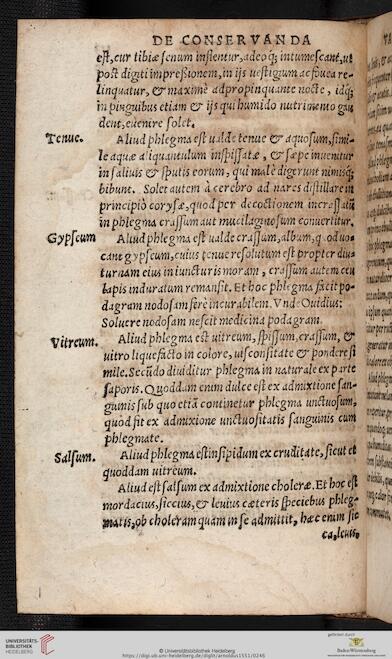 DE CONSERVANDA
est, cur tibiæ senum inflentur, adeoq; intumescant, ut
post digiti impreßionem, in ijs uestigium ac fouea re-
linquatur, & maximè adpropinquante nocte, idq;
in pinguibus etiam & ijs qui humido nutrimento gau
dent, euenire solet.
Tenue. Aliud phlegma est ualde tenue & aquosum, simi-
le aquæ aliquantulum inspissatæ, & sæpe inuenitur
in saliuis & sputis eorum, qui malè digerunt nimisq;
bibunt. Solet autem à cerebro ad nares distillare in
principiò corysæ, quod per decoctionem incrassatū
in phlegma crassum aut mucilaginosum conuertitur.
Gypseum Aliud phlegma est ualde crassum, album, quod uo-
cant gypseum, cuius tenue resolutum est propter diu-
turnam eius in iuncturis moram, crassum autem ceu
lapis induratum remansit. Et hoc phlegma facit po-
dagram nodosam ferè incurabilem. Vnde Ouidius:
Soluere nodosam nescit medicina podagram.
Vitreum. Aliud phlegma est uitreum, spissum, crassum, &
uitro liquefacto in colore, uiscositate & pondere si
mile. Secūdo diuiditur phlegma in naturale ex parte
saporis. Quoddam enim dulce est ex admixtione san-
guinis sub quo etiā continetur phlegma unctuosum,
quod fit ex admixione unctuositatis sanguinis cum
phlegmate.
Salsum. Aliud phlegma est insipidum ex cruditate, sicut et
quoddam uitreum.
Aliud est salsum ex admixtione choleræ. Et hoc est
mordacius, siccius, & leuius cæteris speciebus phleg-
matis, ob choleram quam in se admittit, hæc enim sic
ca, leuis,
UNIVERSITÄTS-
BIBLIOTHEK
HEIDELBERG
© Universitätsbibliothek Heidelberg
https://digi.ub.uni-heidelberg.de/diglit/arnoldus1551/0246
gefördert durch
Baden-Württemberg